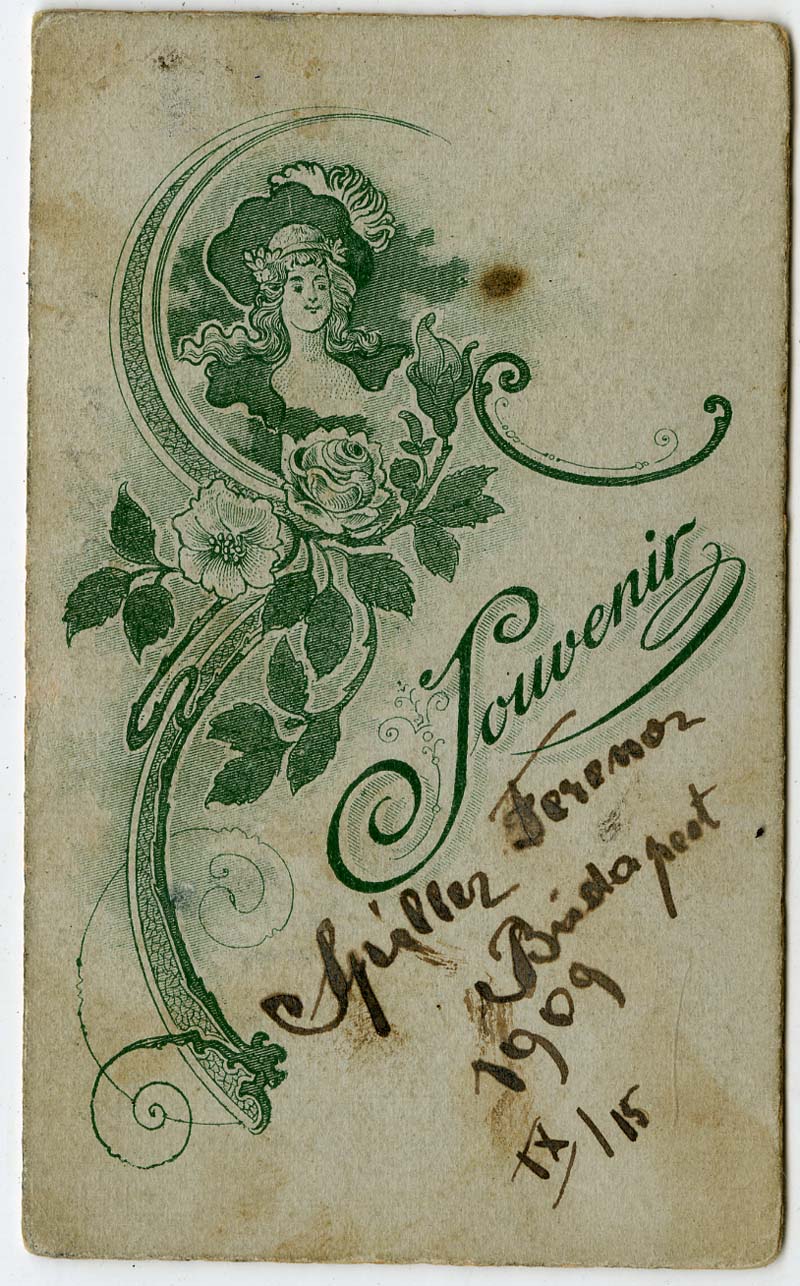 Souvenir
Spiller Ferencz
Budapest
1909
IX/15